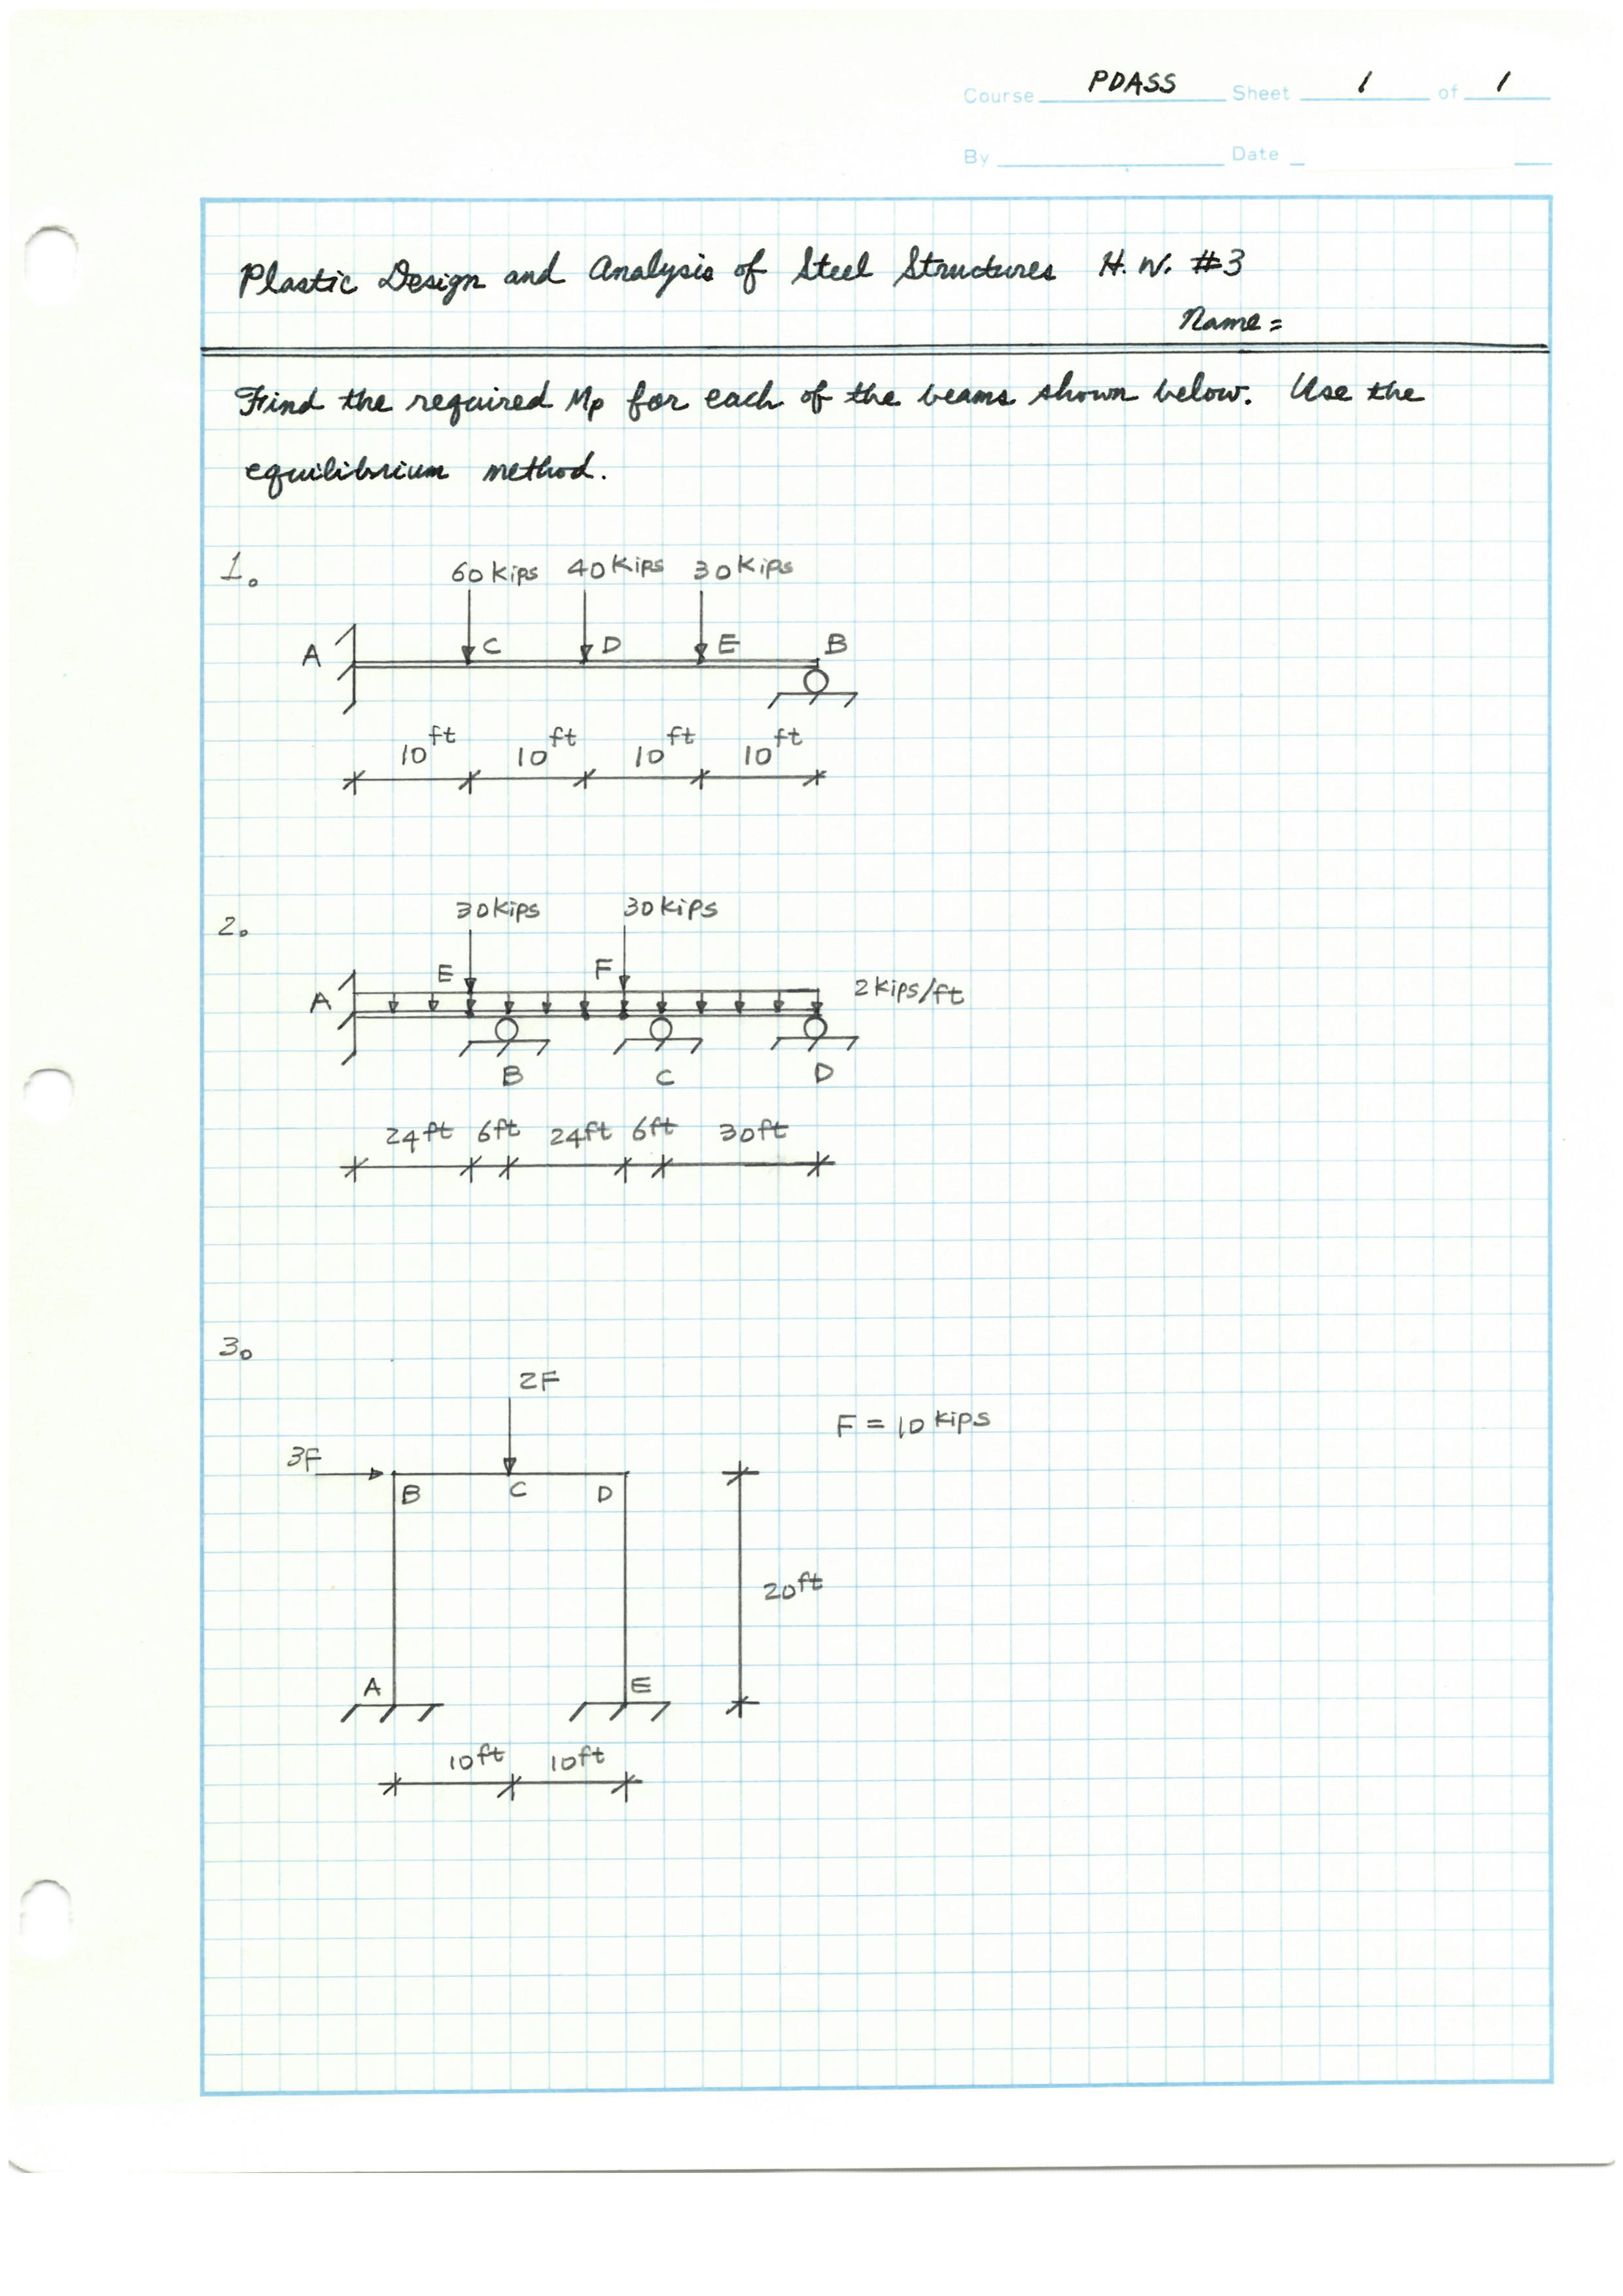 Course PDASS Sheet 1 of 1
By Date
Plastic Design and Analysis of Steel Structures H.W. #3
Name =
Find the required Mp for each of the beams shown below. Use the
equilibrium method.
1.
60 kips 40 kips 30 kips
A C D E B
10 ft 10 ft 10 ft 10 ft
2.
30 kips 30 kips
E F
A 2 kips/ft
B C D
24 ft 6 ft 24 ft 6 ft 30 ft
3.
2F
F = 10 kips
3F
B C D
20 ft
A E
10 ft 10 ft